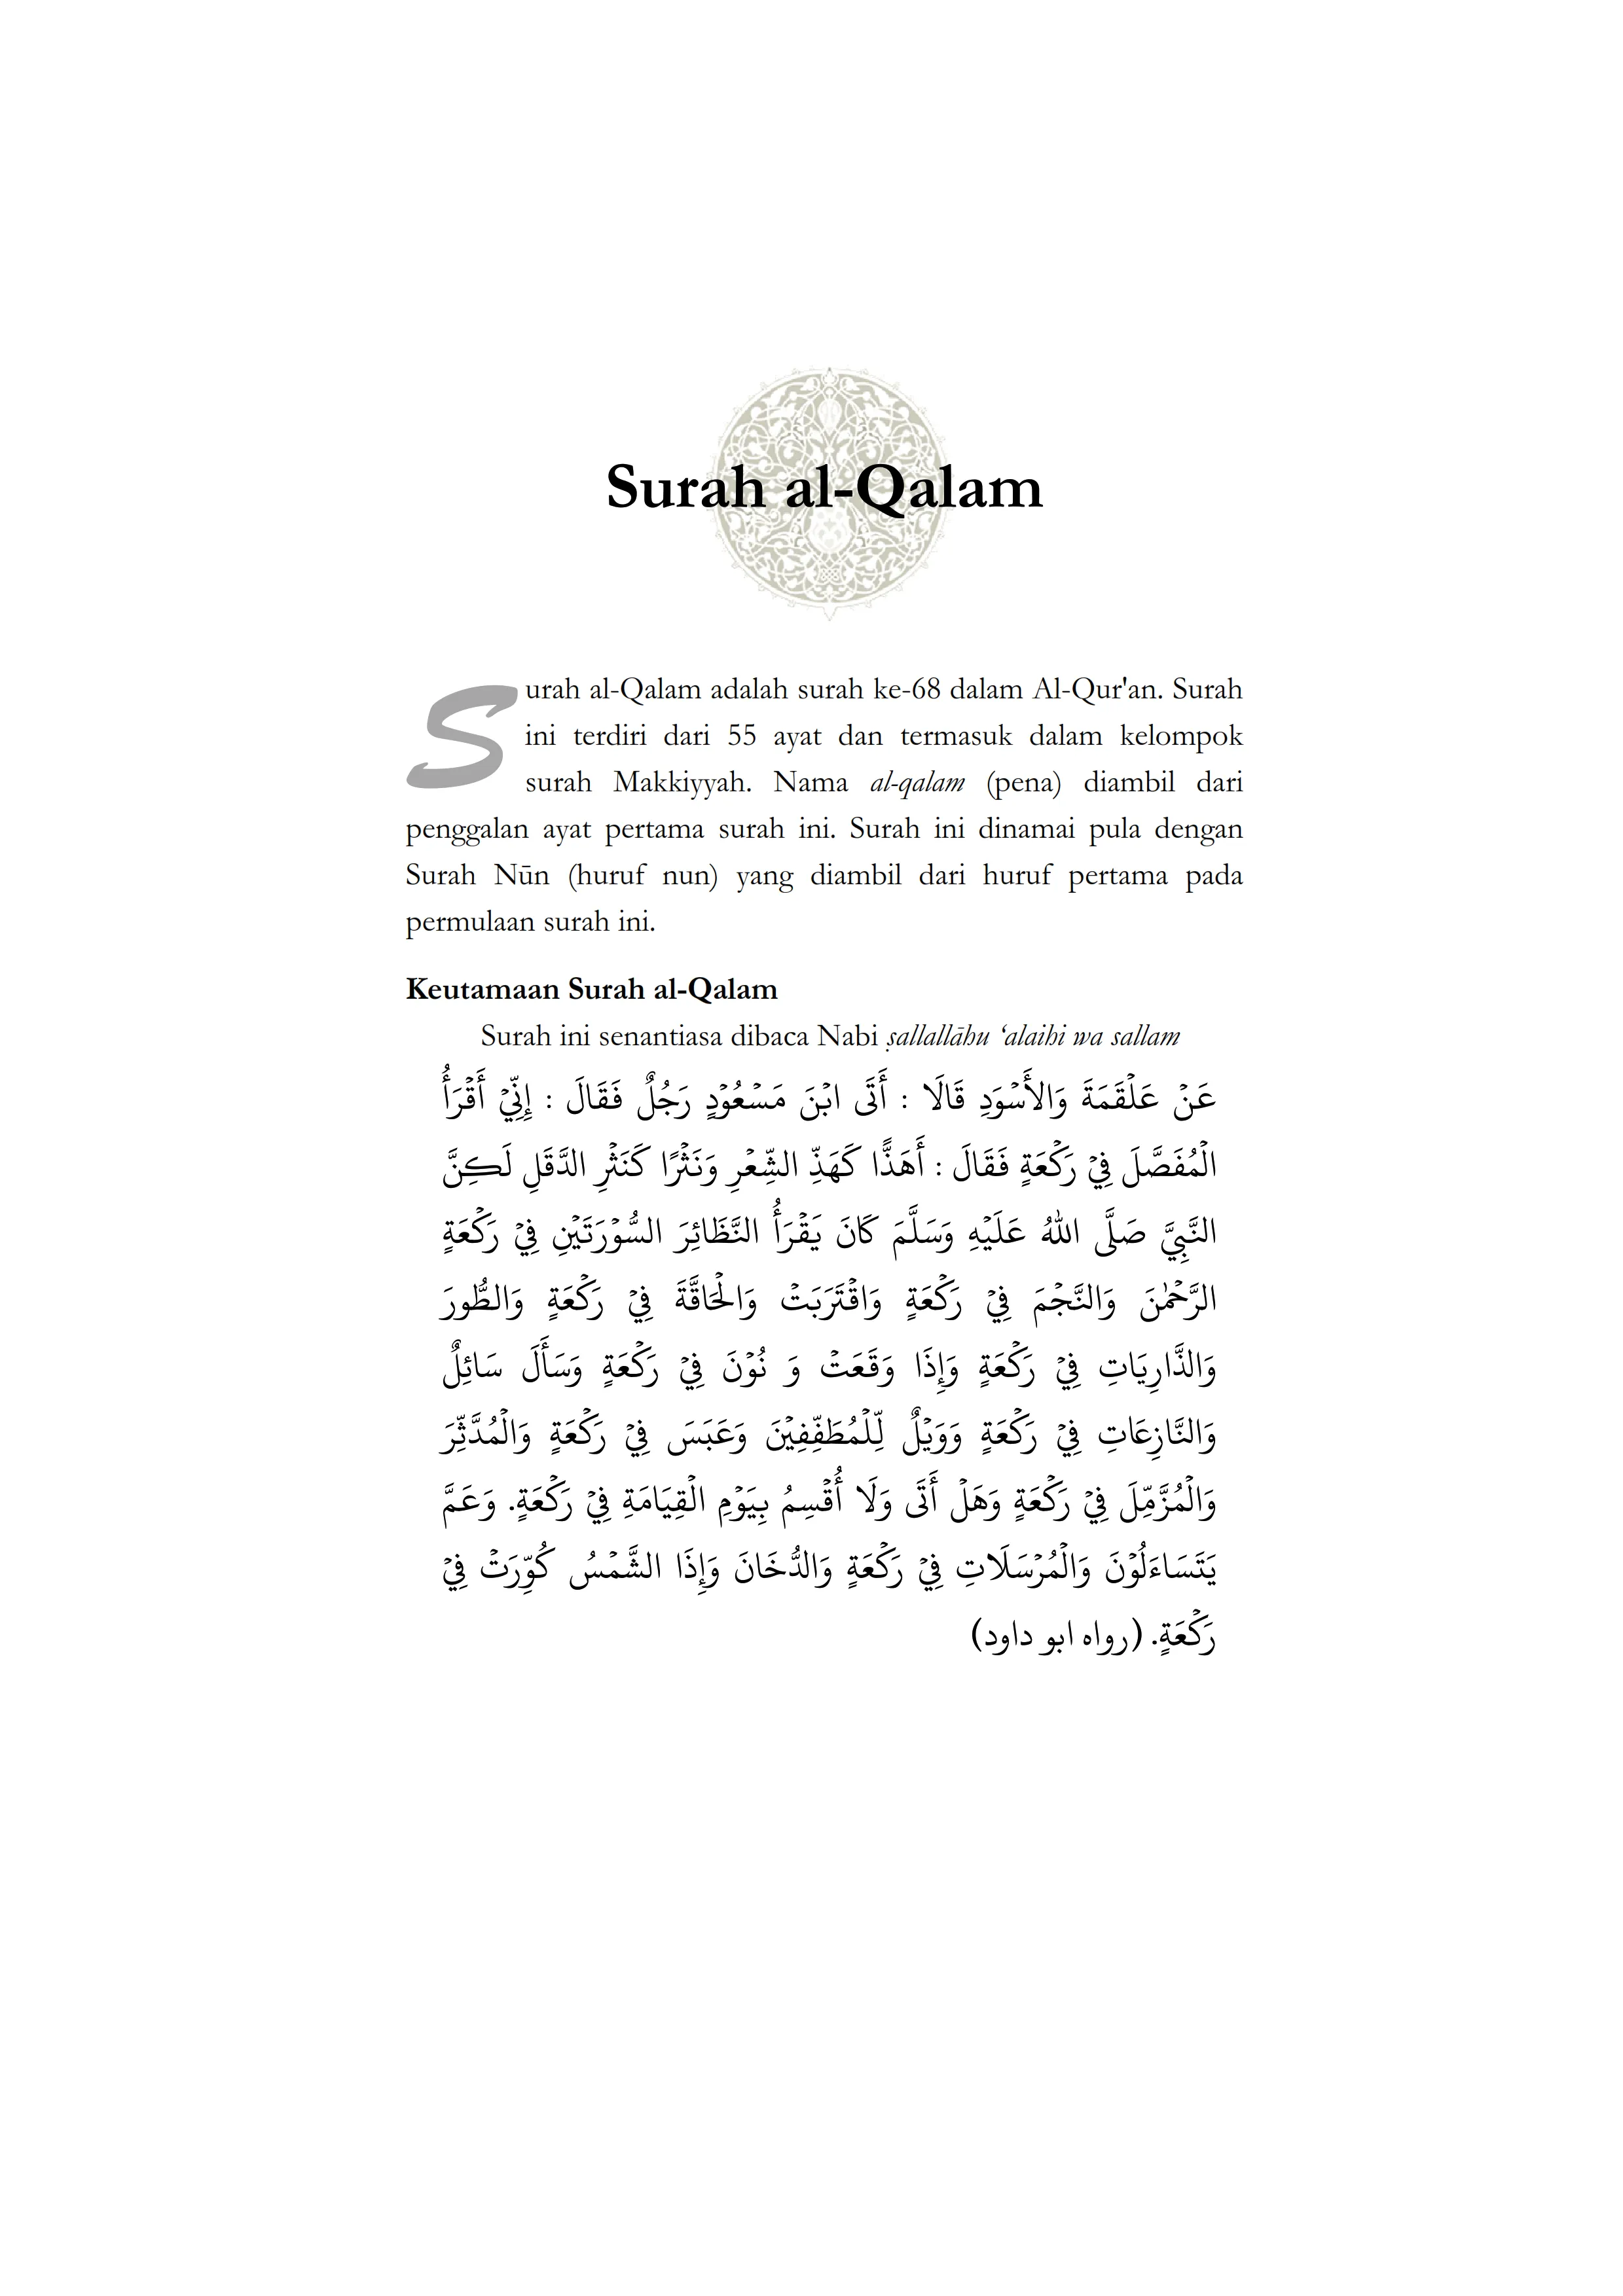 Surah al-Qalam
Surah al-Qalam adalah surah ke-68 dalam Al-Qur'an. Surah
ini terdiri dari 55 ayat dan termasuk dalam kelompok
surah Makkiyyah. Nama al-qalam (pena) diambil dari
penggalan ayat pertama surah ini. Surah ini dinamai pula dengan
Surah Nūn (huruf nun) yang diambil dari huruf pertama pada
permulaan surah ini.
Keutamaan Surah al-Qalam
Surah ini senantiasa dibaca Nabi ṣallallāhu ‘alaihi wa sallam
عَنْ عَلْقَمَةَ وَالأَسْوَدِ قَالَا : أَتَى ابْنَ مَسْعُوْدٍ رَجُلٌ فَقَالَ : إِنِّيْ أَقْرَأُ
الْمُفَصَّلَ فِيْ رَكْعَةٍ فَقَالَ : أَهَذًّا كَهَذِّ الشِّعْرِ وَنَثْرًا كَنَثْرِ الدَّقَلِ لَكِنَّ
النَّبِيَّ صَلَّى اللهُ عَلَيْهِ وَسَلَّمَ كَانَ يَقْرَأُ النَّظَائِرَ السُّوْرَتَيْنِ فِيْ رَكْعَةٍ
الرَّحْمٰنَ وَالنَّجْمَ فِيْ رَكْعَةٍ وَاقْتَرَبَتْ وَالْحَاقَّةَ فِيْ رَكْعَةٍ وَالطُّورَ
وَالذَّارِيَاتِ فِيْ رَكْعَةٍ وَإِذَا وَقَعَتْ وَ نُوْنَ فِيْ رَكْعَةٍ وَسَأَلَ سَائِلٌ
وَالنَّازِعَاتِ فِيْ رَكْعَةٍ وَوَيْلٌ لِّلْمُطَفِّفِيْنَ وَعَبَسَ فِيْ رَكْعَةٍ وَالْمُدَّثِّرَ
وَالْمُزَّمِّلَ فِيْ رَكْعَةٍ وَهَلْ أَتَى وَلَا أُقْسِمُ بِيَوْمِ الْقِيَامَةِ فِيْ رَكْعَةٍ. وَعَمَّ
يَتَسَاءَلُوْنَ وَالْمُرْسَلَاتِ فِيْ رَكْعَةٍ وَالدُّخَانَ وَإِذَا الشَّمْسُ كُوِّرَتْ فِيْ
رَكْعَةٍ. (رواه ابو داود)